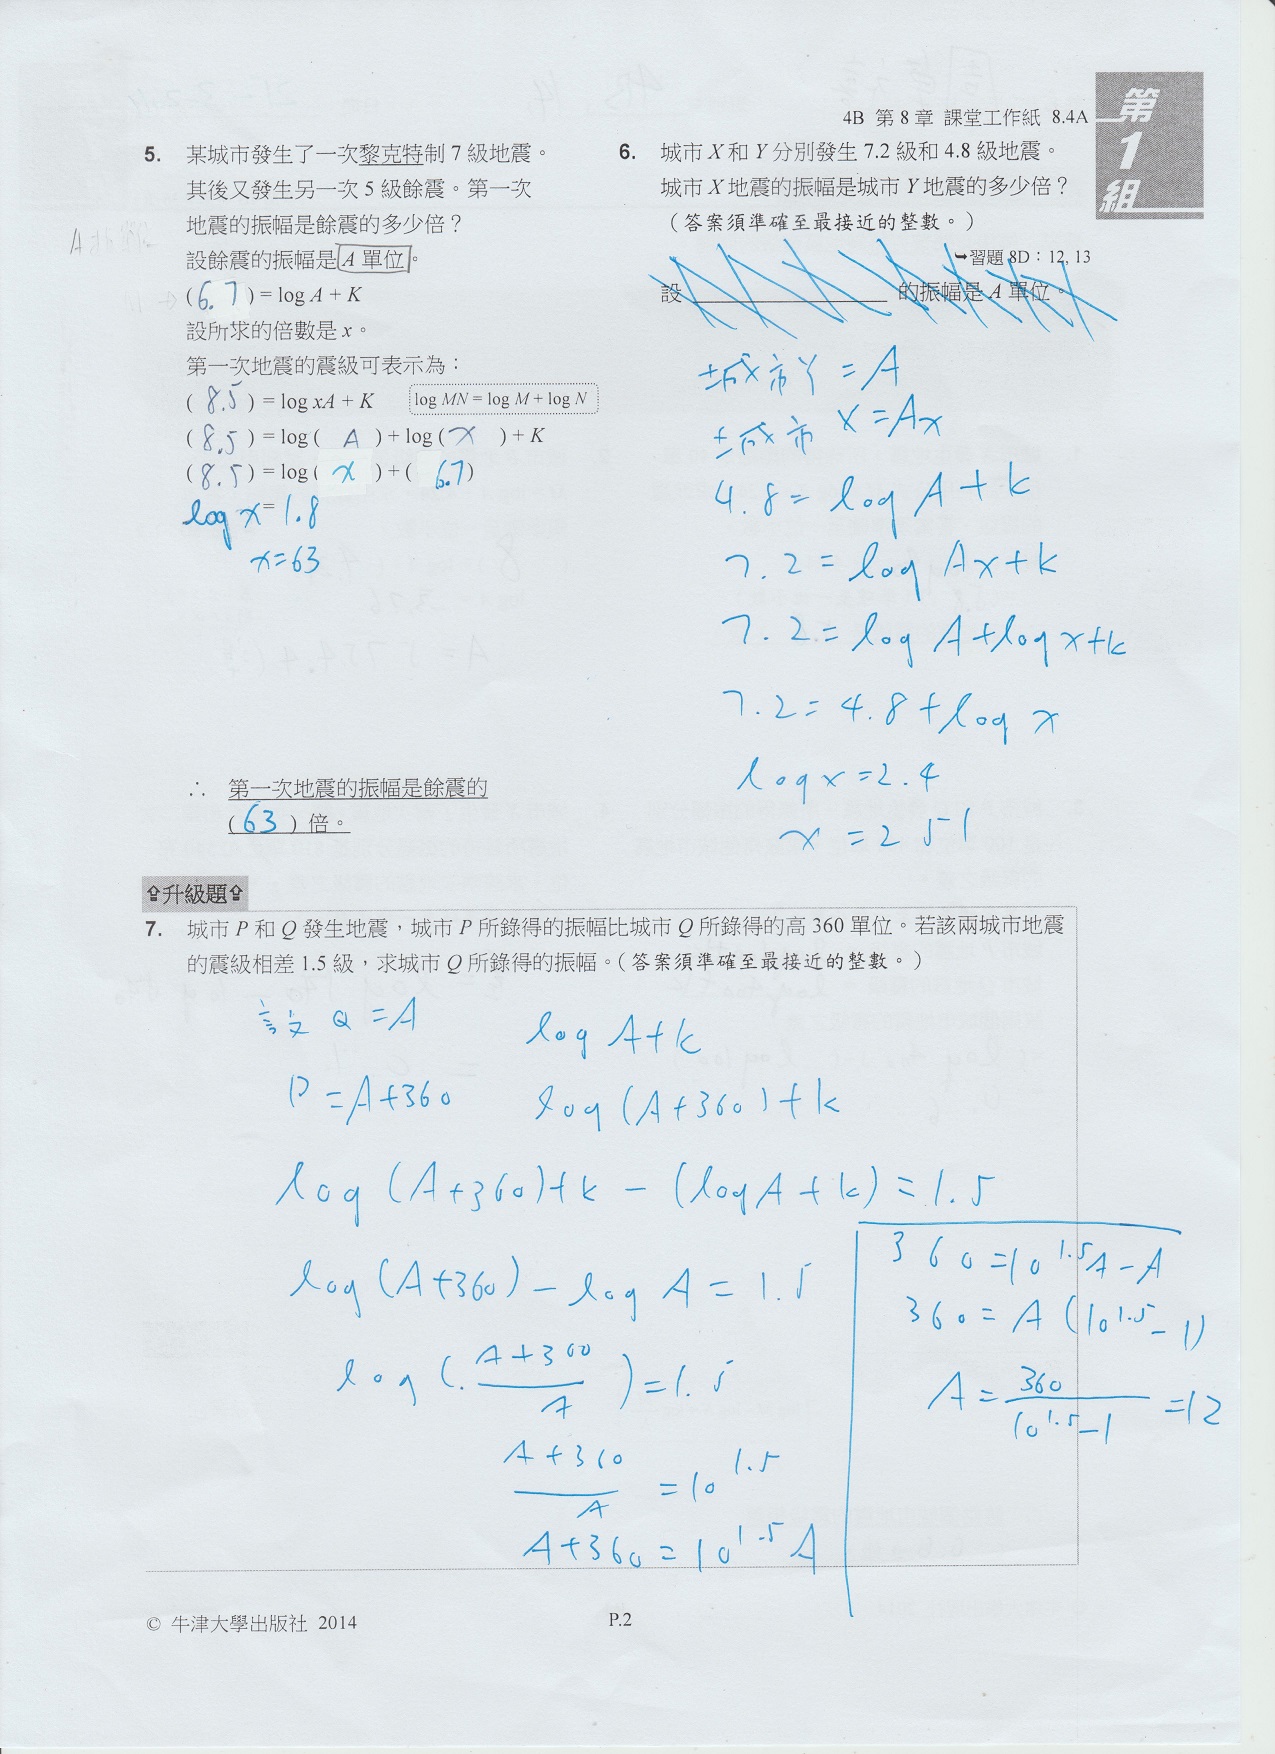 4B 第 8 章 課堂工作紙 8.4A
第1組
5. 某城市發生了一次黎克特制 7 級地震。
其後又發生另一次 5 級餘震。第一次
地震的振幅是餘震的多少倍？
設餘震的振幅是 A 單位。
(6.7) = log A + K
設所求的倍數是 x。
第一次地震的震級可表示為：
(8.5) = log xA + K
log MN = log M + log N
(8.5) = log( A ) + log( x ) + K
(8.5) = log( x ) + ( 6.7)
log x = 1.8
x=63
∴ 第一次地震的振幅是餘震的
(63) 倍。
6. 城市 X 和 Y 分別發生 7.2 級和 4.8 級地震。
城市 X 地震的振幅是城市 Y 地震的多少倍？
（答案須準確至最接近的整數。）
➥習題 8D：12, 13
設 ____________ 的振幅是 A 單位。
城市Y = A
城市 X = Ax
4.8 = log A + k
7.2 = log Ax + k
7.2 = log A + log x + k
7.2 = 4.8 + log x
log x = 2.4
x = 251
⇧升級題⇧
7. 城市 P 和 Q 發生地震，城市 P 所錄得的振幅比城市 Q 所錄得的高 360 單位。若該兩城市地震
的震級相差 1.5 級，求城市 Q 所錄得的振幅。（答案須準確至最接近的整數。）
設 Q = A log A + k
P = A+360 log (A+360) + k
log (A+360) + k − (log A + k) = 1.5
log (A+360) − log A = 1.5
log (A+360 / A) = 1.5
A+360 / A = 10^1.5
A+360 = 10^1.5 A
360 = 10^1.5 A − A
360 = A (10^1.5 − 1)
A = 360 / 10^1.5 − 1 = 12
© 牛津大學出版社 2014
P.2